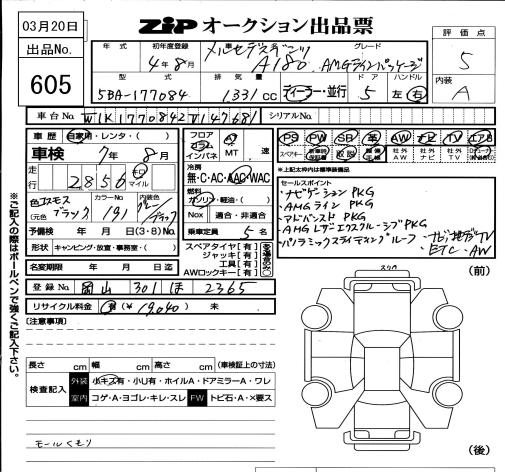 03月20日
ZiP オークション出品票
評価点
出品No.
605
5
内装
A
年式 初年度登録 車名 グレード
4年8月 メルセデスベンツ A180 AMGラインパッケージ
型式 排気量 ドア ハンドル
5BA-177084 1331CC ディーラー・並行 5 左・右
車台No. W1K1770842V147681 シリアルNo.
車歴 自家用・レンタ・( )
フロア コラム インパネ AT MT 速
PS PW SR 革 AW ナビ TV エアB
車検 7年8月
スペアキー 新車時保証書 取説 記録簿 社外AW 社外ナビ 社外TV
走行 2856 キロ マイル
冷房
無・C・AC・AAC・WAC
*上記太枠内は標準装備品
色 コスモスブラック カラーNo. 191 内装色 グレー/ブラック
(元色)
燃料
ガソリン・軽油・( )
Nox 適合・非適合
セールスポイント
・ナビゲーション PKG
・AMGライン PKG
・アドバンスド PKG
・AMGレザーエクスクルーシブPKG
・パノラミックスライディングルーフ
・ナビ・地デジTV
・ETC・AW
予備検 年 月 日(3・8)No.
乗車定員 5名
形状 キャンピング・放送・事務室・( )
スペアタイヤ[有]
ジャッキ[有]
工具[有]
AWロックキー[有]
名変期限 年 月 日迄
登録No. 岡山 301 ほ 2365
リサイクル料金 済(¥19,040) 未
[注意事項]
※ご記入の際はボールペンで強くご記入下さい。
長さ cm 幅 cm 高さ cm (車検証上の寸法)
検査記入 外装 小キズ有・小U有・ホイルA・ドアミラーA・ワレ
室内 コゲ・A・ヨゴレ・キレ・スレ FW トビ石・A・X要ス
モールくもり
(前)
(後)